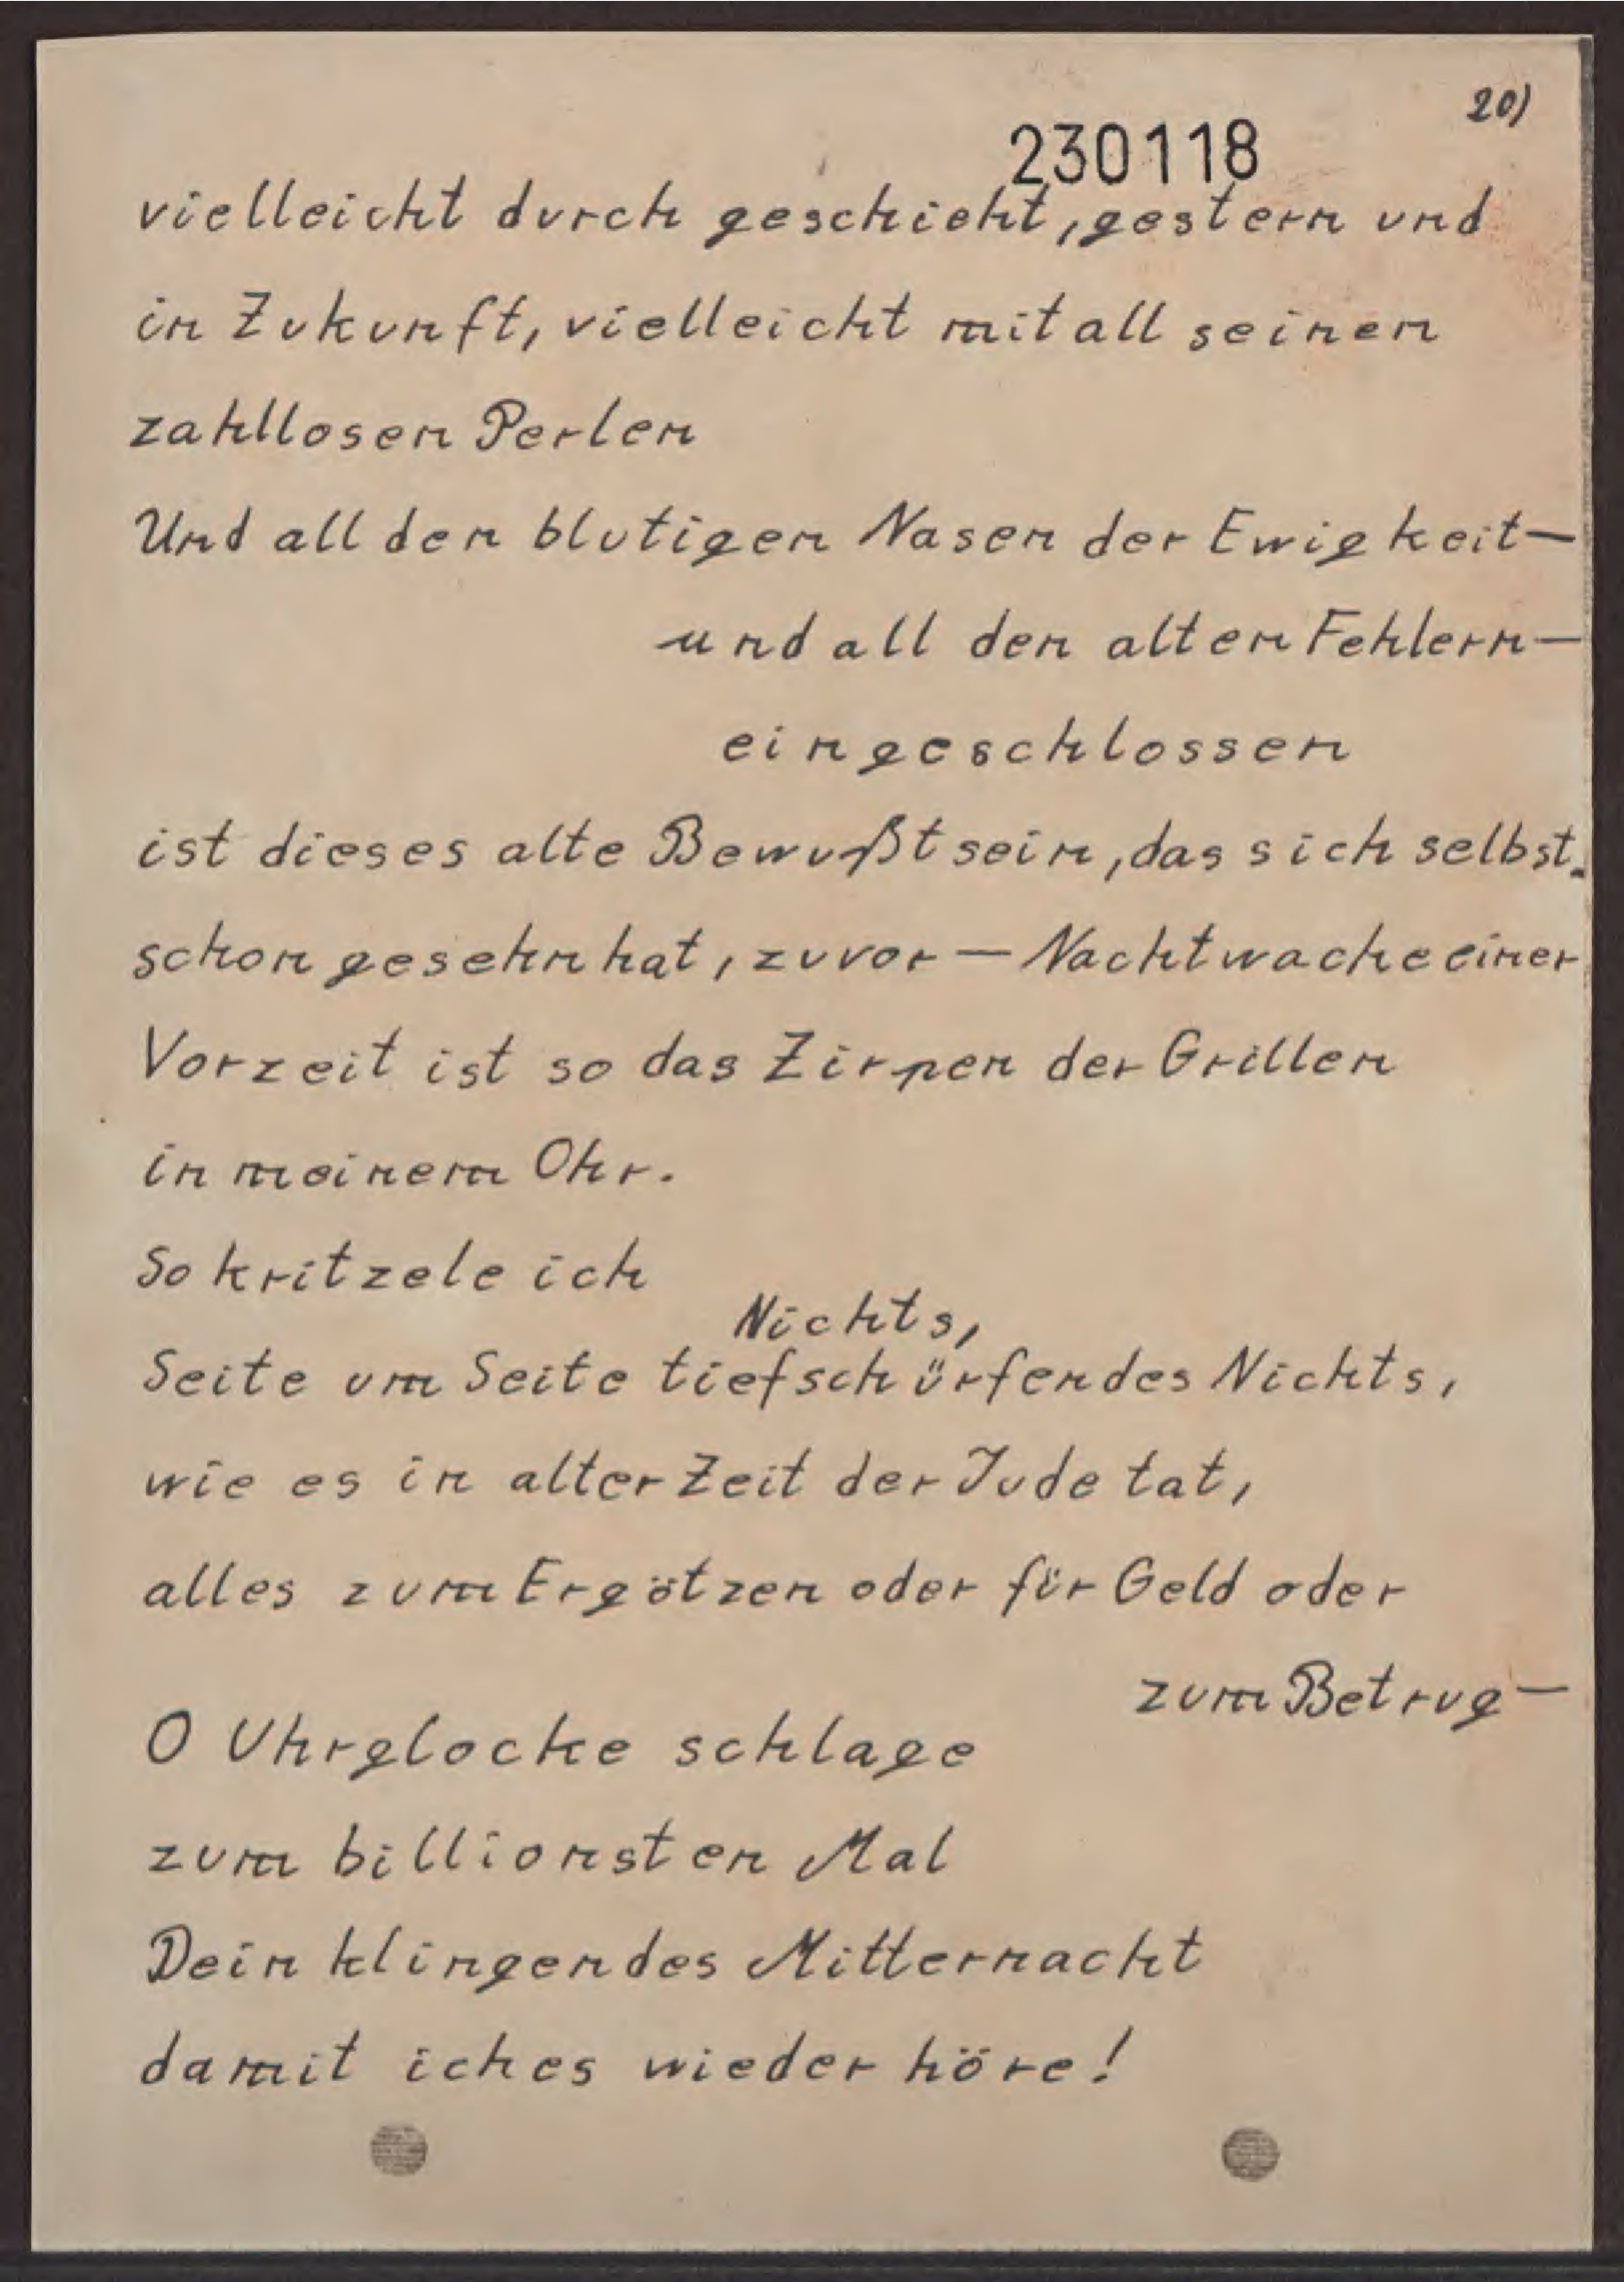 20)
230118
vielleicht durch geschieht, gestern und
in Zukunft, vielleicht mit all seinen
zahllosen Perlen
Und all den blutigen Nasen der Ewigkeit—
und all den alten Fehlern—
eingeschlossen
ist dieses alte Bewußtsein, das sich selbst
schon gesehn hat, zuvor — Nachtwache einer
Vorzeit ist so das Zirpen der Grillen
in meinem Ohr.
So kritzele ich
Nichts,
Seite um Seite tiefschürfendes Nichts,
wie es in alter Zeit der Jude tat,
alles zum Ergötzen oder für Geld oder
zum Betrug—
O Uhrglocke schlage
zum billionsten Mal
Dein klingendes Mitternacht
damit ich es wieder höre!